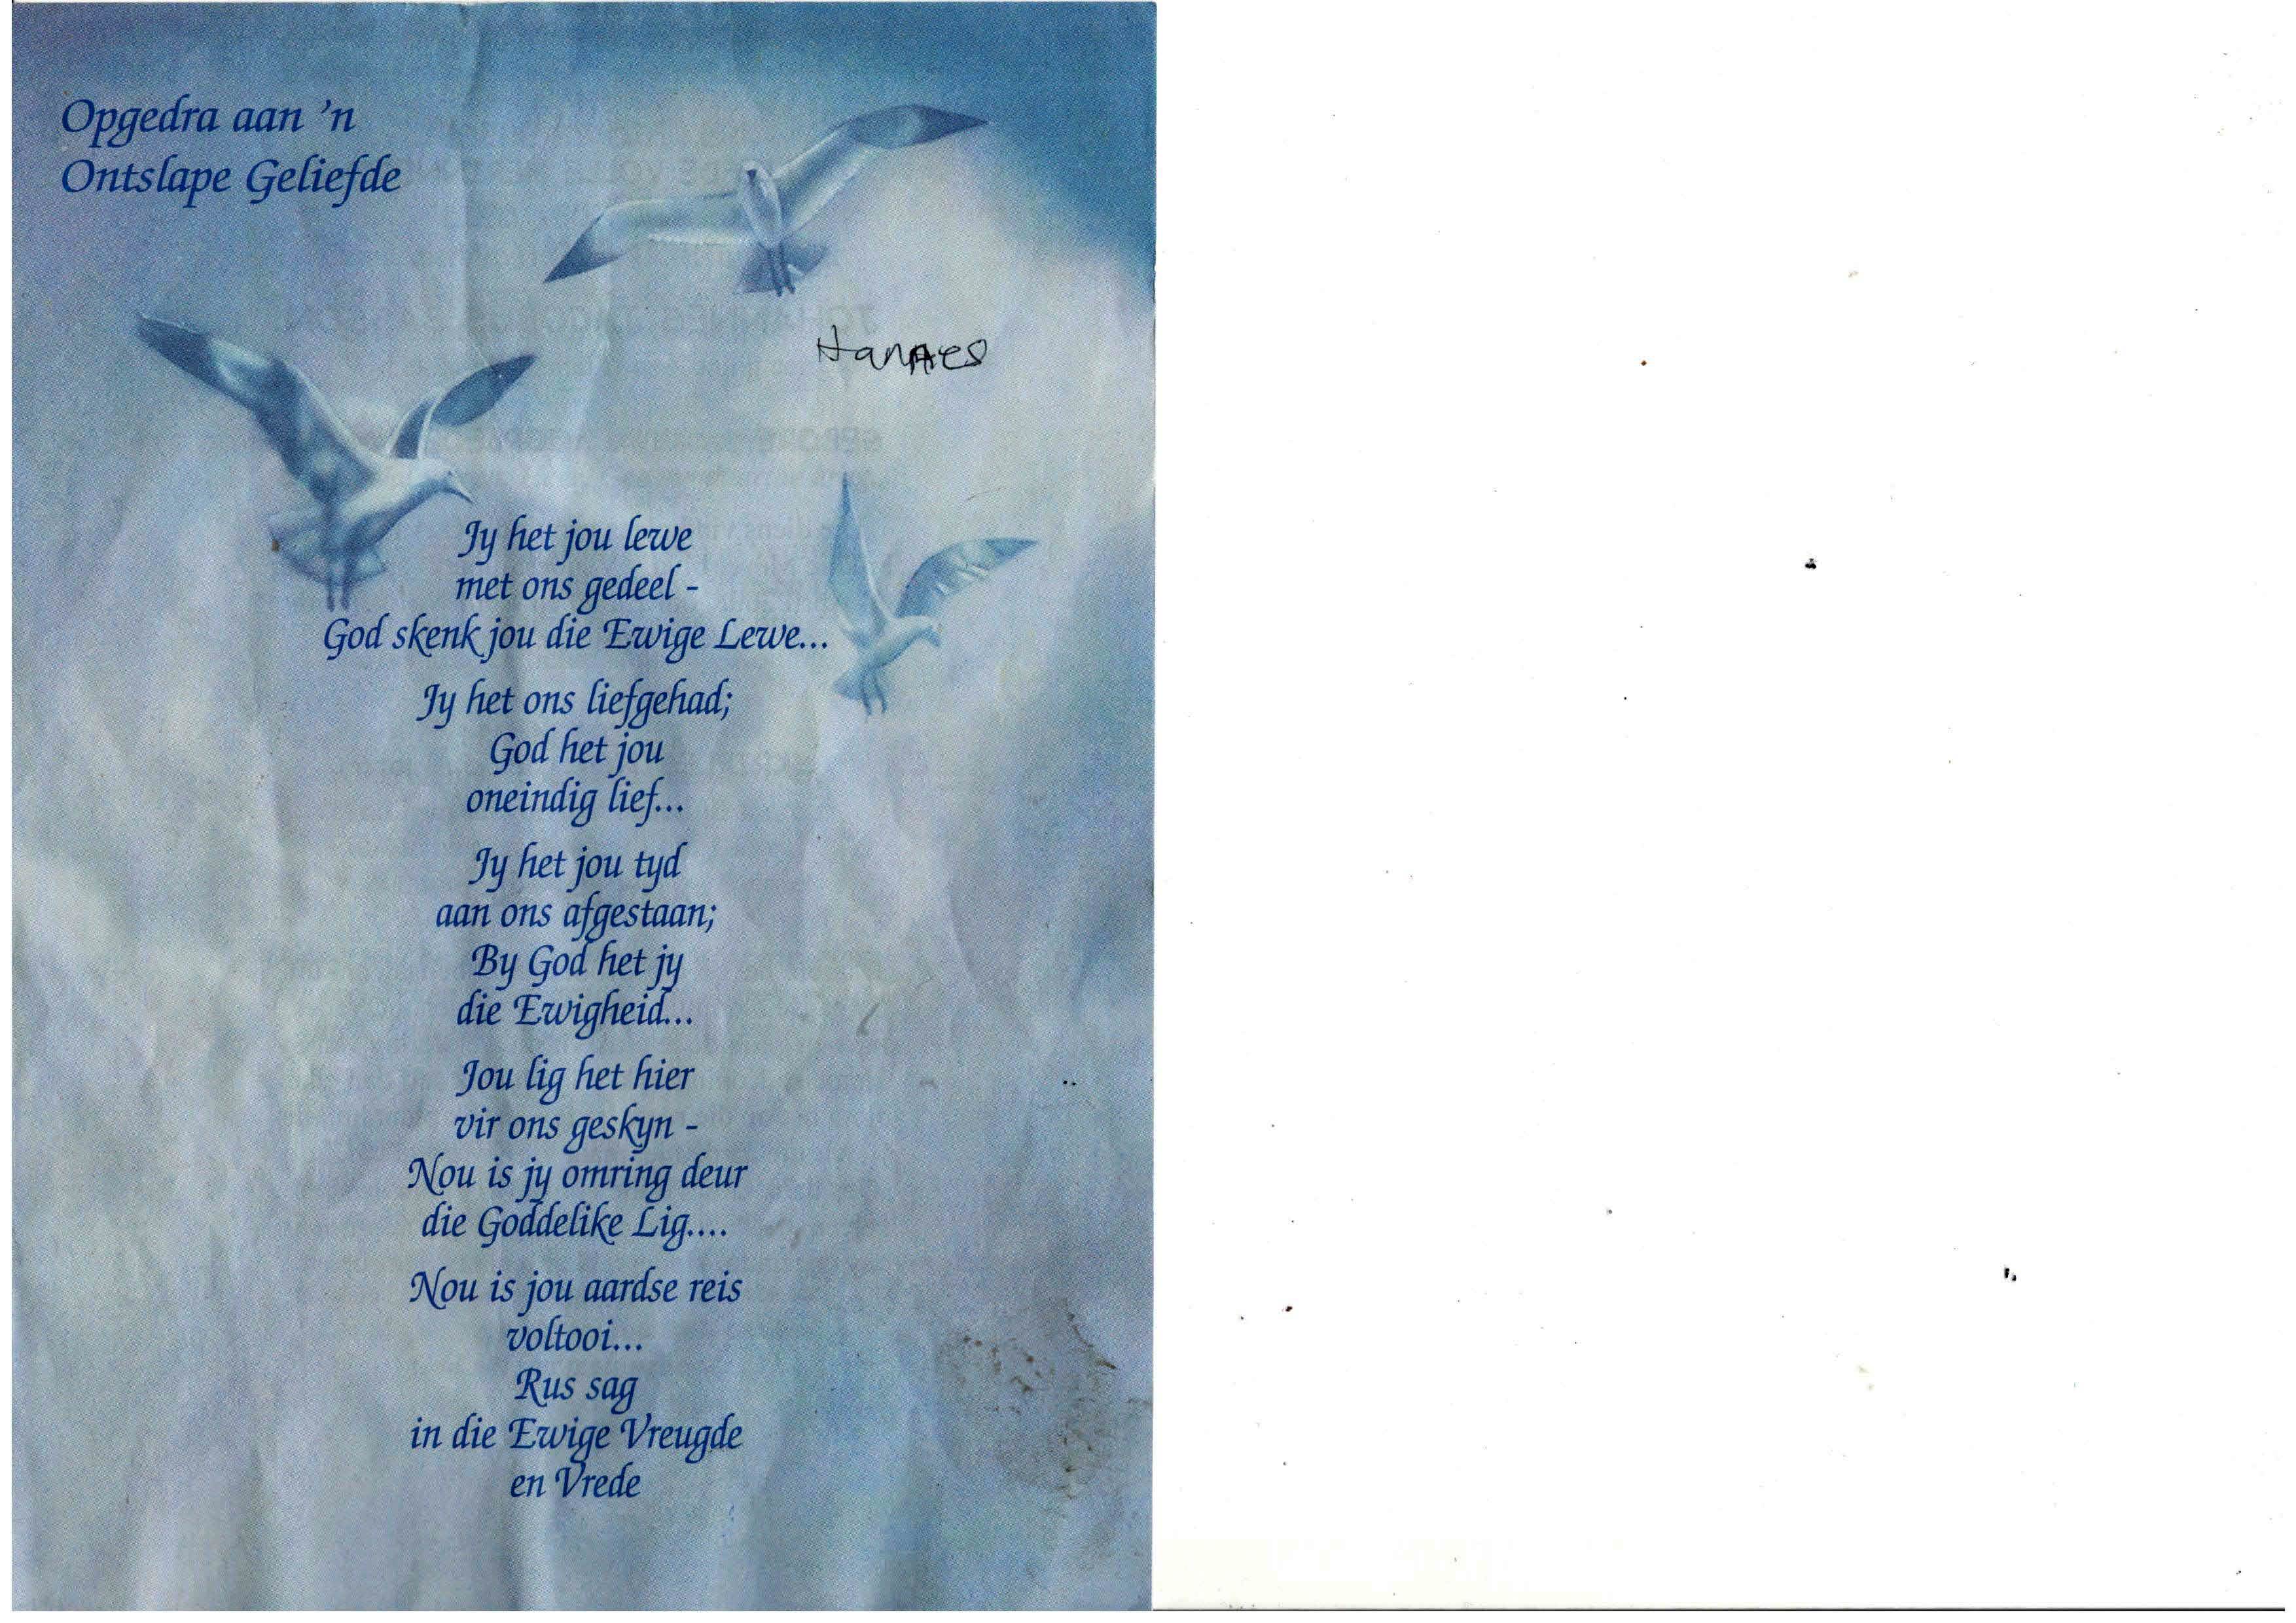 Opgedra aan 'n
Ontslape Geliefde
Hannes
Jy het jou lewe
met ons gedeel -
God skenk jou die Ewige Lewe...
Jy het ons liefgehad;
God het jou
oneindig lief...
Jy het jou tyd
aan ons afgestaan;
By God het jy
die Ewigheid...
Jou lig het hier
vir ons geskyn -
Nou is jy omring deur
die Goddelike Lig....
Nou is jou aardse reis
voltooi...
Rus sag
in die Ewige Vreugde
en Vrede